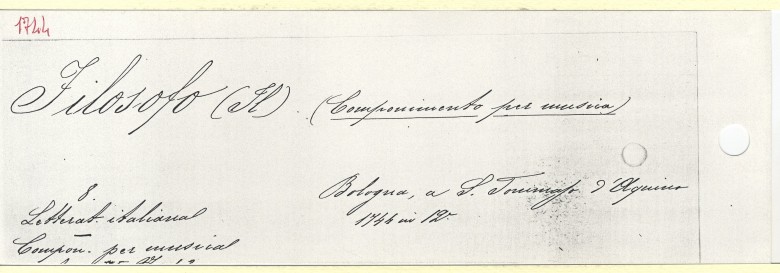 1744
Filosofo (Il) (Componimento per musica)
8.
Bologna, a S. Tommaso d'Aquino
1744 in 12°
Letterat. italiana
Compon. per musica